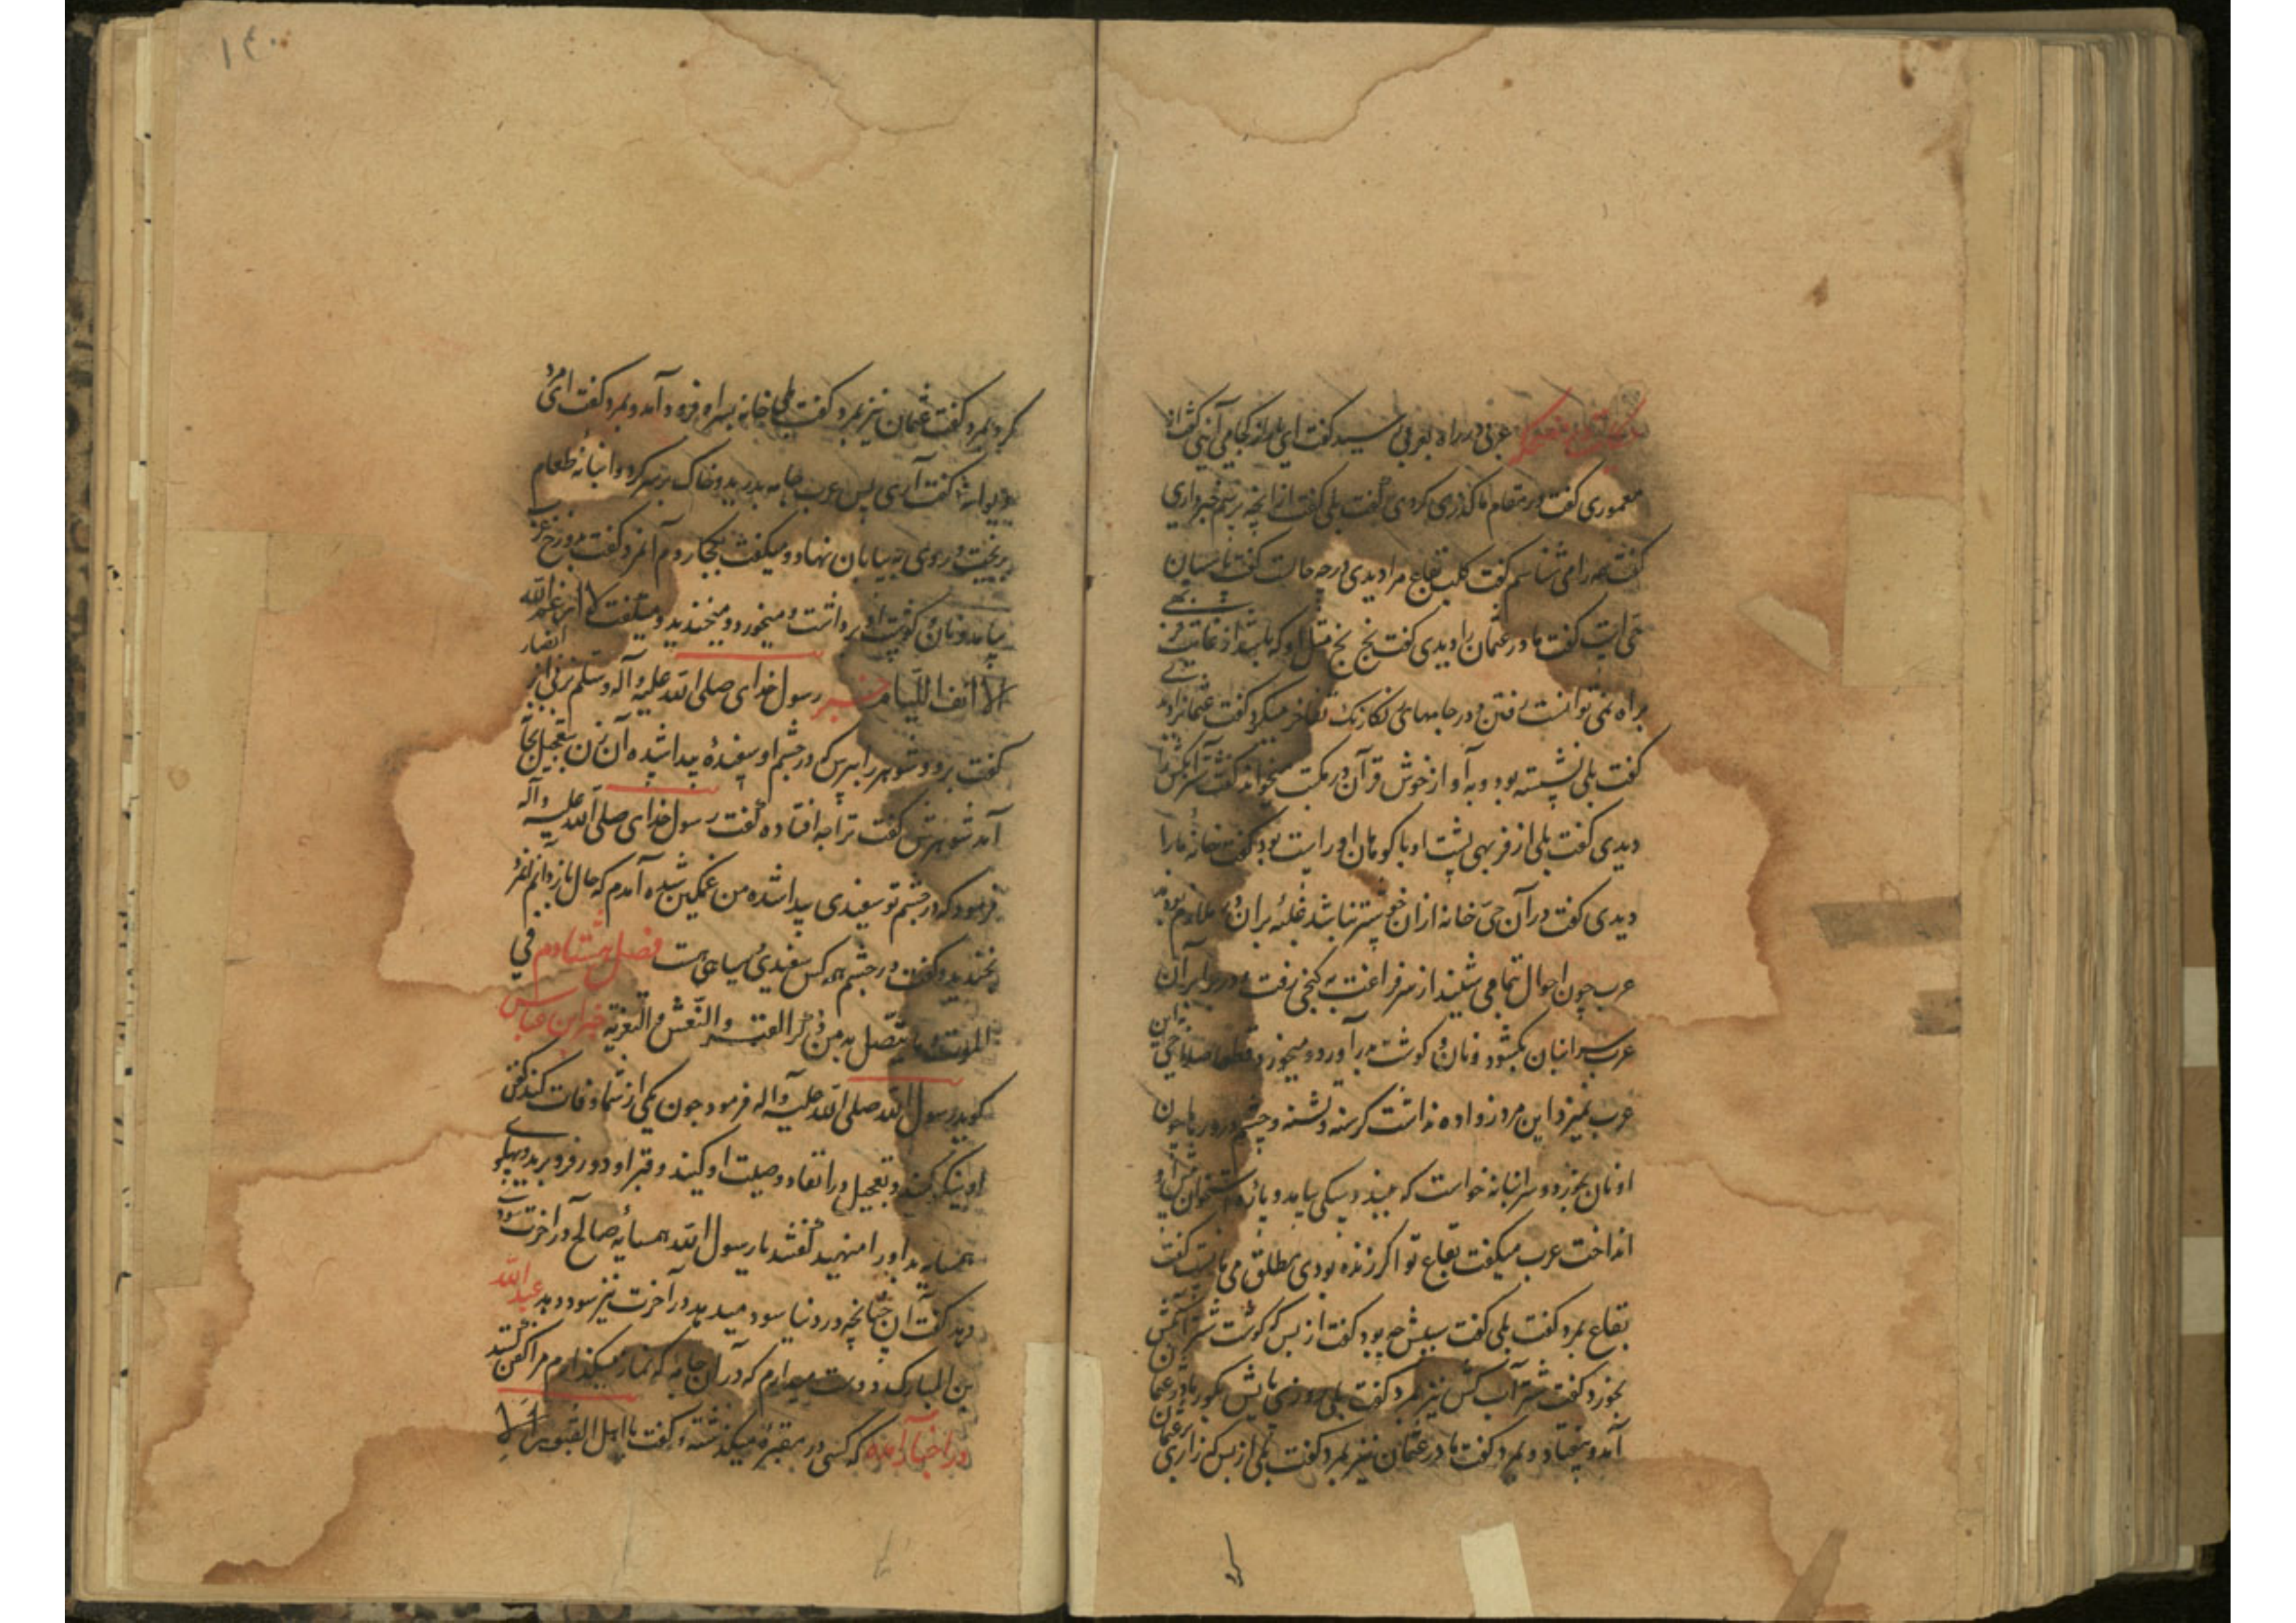 عربی در راه بعربی رسید گفت ای برادر از کجا می آئی گفت از
معموری گفت در مقام ما گذری کردی گفت بلی گفت از آنچه پرسم خبر داری
گفت همه را می شناسم گفت کلب بقاع مرا دیدی در چه حالت گفت پاسبان
حی است گفت مادر عثمان را دیدی گفت بخ بخ مثل او که باشد از غایت فربهی
براه نمی توانست رفتن و در جامهای رنگارنگ تفاخر میکرد گفت عثمان را دیدی
گفت بلی نشسته بود و به آواز خوش قرآن در مکتب میخواند گفت شتر آبکش را
دیدی گفت بلی از فربهی پشت او با کوهان او راست بود گفت خانه مارا
دیدی گفت در آن حی خانه ازان خوشتر نباشد
عرب چون احوال تمامی شنید از سر فراغت به کنجی رفت و در برابر آن
عرب سر انبان بگشود و نان و گوشت برآورد و میخورد و قطعا صلا نمی زد این
عرب این مرد زواده نداشت گرسنه و تشنه و چشم در وی چون
او نان بخورد و سر انبانه خواست که ببندد سگی بیامد و پاره استخوان پیش او
انداخت عرب میگفت بقاع تو اگر زنده بودی مطلق می مانست گفت
بقاع بمرد گفت بلی گفت سببش چه بود گفت از بس که گوشت شتر آبکش
بخورد گفت شتر آب کش نیز بمرد گفت بلی روزی پایش بگور مادر عثمان
آمد و بیفتاد و بمرد گفت مادر عثمان نیز بمرد گفت بلی از بس که زاری
۱۴۰
کرد بمرد گفت عثمان نیز بمرد گفت بلی خانه بسر او فرود آمد و بمرد گفت ای مرد
گفت آری پس عرب جامه بدرید و خاک بر سر کرد و انبانه طعام
بریخت و روی به بیابان نهاد و میگفت بکجا روم آنمرد گفت بدوزخ
بیامد و نان و گوشت او برداشت و میخورد و میخندید و میگفت لا ارغم الله
الا انف اللیام خبر رسول خدای صلی الله علیه و آله و سلم زنی از انصار
گفت برو و شوهر را بپرس که در چشم او سفیدهٔ پیدا شده آن زن بتعجیل بخانه
آمد شوهرش گفت ترا چه افتاده گفت رسول خدای صلی الله علیه و آله
فرمود که در چشم تو سفیدی پیدا شده من غمگین شده آمدم که حال باز دانم آنمرد
بخندید و گفت در چشم همه کس سفیدی و سیاهی هست فصل هشتادم في
الموت و ما یتصل به من ذکر القبر و النعش و التعزیة خبر ابن عباس
گوید رسول الله صلی الله علیه و آله فرمود چون یکی از شما وفات کند کفن
او نیکو کنید و تعجیل در انفاذ وصیت او کنید و قبر او دور فرو برید و پهلوی
همسایه بد او را منهید گفتند یا رسول الله همسایهٔ صالح در آخرت سود
دهد گفت آن چنانچه در دنیا سود میدهد در آخرت نیز سود دهد عبد الله
بن المبارک دوست میدارم که در آن جامه که نماز میگذارم مرا کفن کنند
در اخبار آمده که کسی در مقبرهٔ میگذشته و گفت یا اهل القبور